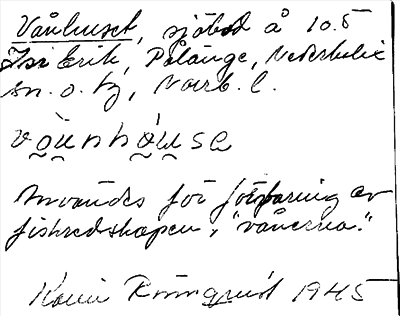 Vånhuset, sjöbod å 10.5
Erik, Pålänge, Nederkalix
sn. o. tg, Norrb. l.
vo̯ùnho̯úsə
Användes för förvaring av
fiskredskapen, "vånerna."
Karin Rönnquist 1945